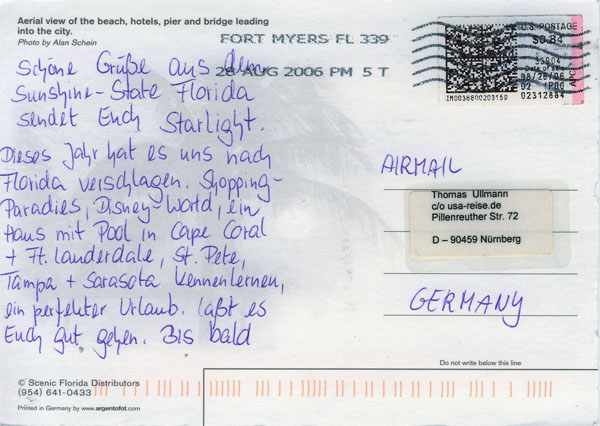 Aerial view of the beach, hotels, pier and bridge leading
into the city.
Photo by Alan Schein
FORT MYERS FL 339
28 AUG 2006 PM 5 T
U.S. POSTAGE
$0.84
08/28/06
02 1P00
02312884
Schöne Grüße aus dem
Sunshine-State Florida
sendet Euch Starlight.
Dieses Jahr hat es uns nach
Florida verschlagen. Shopping-
Paradies, Disney-World, ein
Haus mit Pool in Cape Coral
+ Ft. Landerdale, St. Pete,
Tampa + Sarasota kennenlernen,
ein perfekter Urlaub. Laßt es
Euch gut gehen. Bis bald
AIRMAIL
Thomas Ullmann
c/o usa-reise.de
Pillenreuther Str. 72
D – 90459 Nürnberg
GERMANY
Do not write below this line
© Scenic Florida Distributors
(954) 641-0433
Printed in Germany by www.argentofot.com